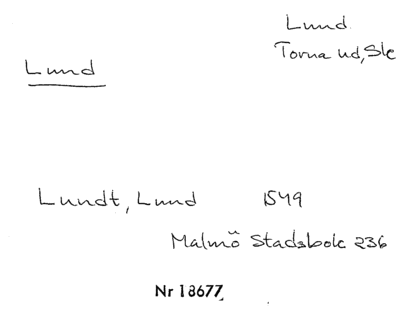 Lund
Torna hd, Ske
Lund
Lundt, Lund 1549
Malmö Stadsbok 236
Nr 18677